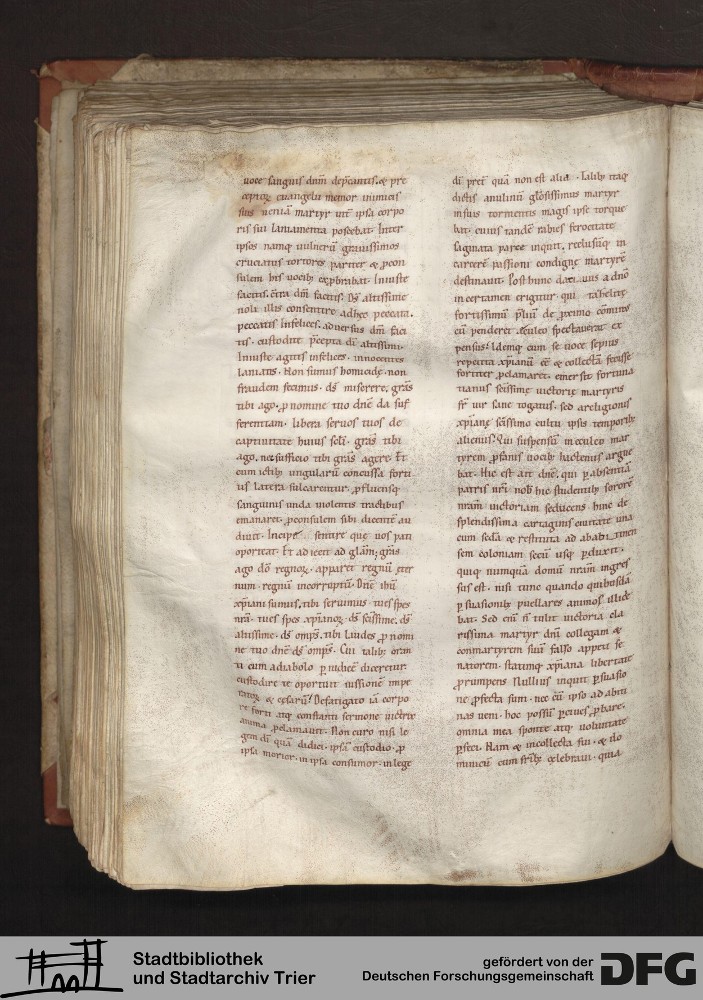 uoce sanguis dnm deprecantis. & pre
ceptor euangelii memor inimicis
suis ueniā martyr inter ipsa corpo
ris sui laniamenta poscebat. Inter
ipsos namq uulnerū grauissimos
cruciatus tortores pariter & pcon
sulem his uocib; exprobrabat. Iniuste
facitis. ctra dm facitis. Ds altissime
noli illis consentire ad hęc peccata.
peccatis infelices. aduersus dm faci
tis. custodite pcepta di altissimi.
Iniuste agitis infelices. innocentes
laniatis. Non sumus homicidę. non
fraudem fecimus. ds miserere. gras
tibi ago. p nomine tuo dne da suf
ferentiam. libera seruos tuos de
captiuitate huius scli. gras tibi
ago. nec sufficio tibi gras agere. Et
cum ictib; ungularū concussa forti
us latera sulcarentur. pfluensq
sanguinis unda uiolentis tractibus
emanaret. pconsulem sibi dicentē au
diuit. Incipe sentire que uos pati
oporteat. Et adiecit ad glam. gras
ago do regnor. apparet regnū eter
num. regnū incorruptū. Dne ihu
xpiani sumus. tibi seruimus. tu es spes
nra. tu es spes xpianor. ds scissime. ds
altissime. ds omps. tibi laudes p nomi
ne tuo dne ds omps. Cui talib; oran
ti cum a diabolo p iudicē diceretur.
custodire te oportuit iussionē impe
rator & cęsarū. Defatigato iā corpo
re forti atq constanti sermone uictrix
anima pclamauit. Non curo nisi le
gem di quā didici. ipsā custodio. p
ipsa morior. in ipsa consumor. in lege
di pret quā non est alia. Talib; itaq
dictis amulinū gloosissimus martyr
in suis tormentis magis ipse torque
bat. cuius tandē rabies ferocitate
saginata parce inquit. reclusūq in
carcerē passioni condignę martyrē
destinauit. Post hunc datiuus a dno
in certamen erigitur. qui thelicę
fortissimū pliū de pximo cōmins
cū penderet eculeo spectauerat ex
pensus. Idemq cum se uoce sepius
repetita xpianū eē & collectā fecisse
fortiter pclamaret. emersit fortuna
tianus scissimę uictorię martyris
fr uir sane togatus. sed a religionis
xpianę scissimo cultu ipsis temporib;
alienus. Qui suspensū in eculeo mar
tyrem pfanis uocib; hactenus argue
bat. Hic est ait dne. qui p absentiā
patris nri nob hic studentib; sororē
nram uictoriam seducens hinc de
splendissima cartaginis ciuitate una
cum secda & restituta ad abbitinen
sem coloniam secū usq pduxit.
quiq numquā domū nram ingres
sus est. nisi tunc quando quibusdā
psuasionib; puellares animos illicie
bat. Sed enī ñ tulit uictoria cla
rissima martyr dni collegam &
conmartyrem suū falso appeti se
natorem. statimq xpiana libertate
prumpens. Nullius inquit psuasio
ne pfecta sum. nec cū ipso ad abiti
nas ueni. hoc possū p ciues pbare.
omnia mea sponte atq uoluntate
pfeci. Nam & in collecta fui. & do
minicū cum frib; celebraui. quia
Stadtbibliothek
und Stadtarchiv Trier
gefördert von der
Deutschen Forschungsgemeinschaft
DFG